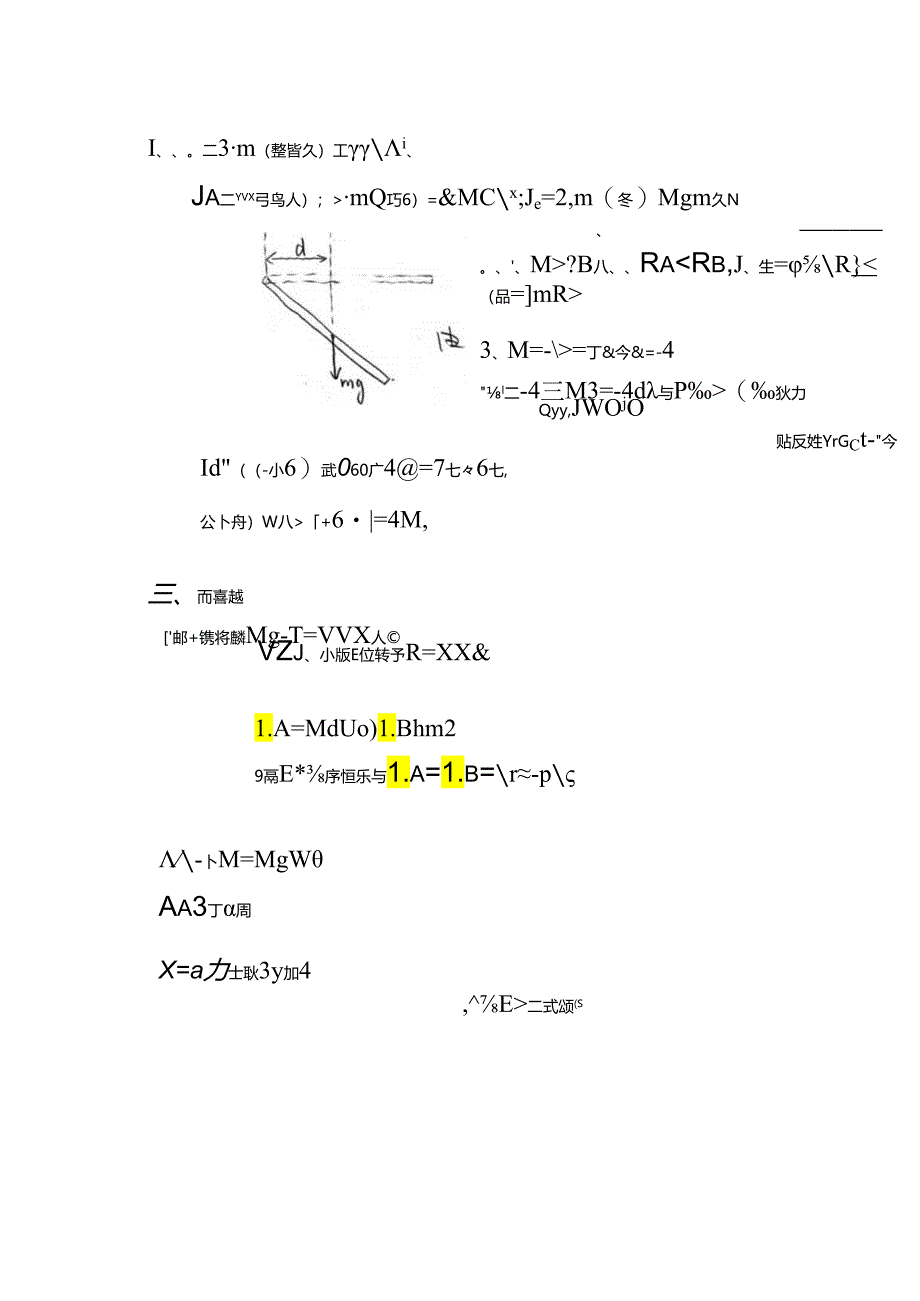 I、、。二3·m（整皆久）工γγ\Λⁱ、
JA二YVX弓鸟人）；>·mQ巧6）=&MC\ˣ;Jₑ=2,m（冬）Mgm久N
、
。、'、M>?B八、、RA<RB,J、生=φ⅝\R}<
（品=]mR>
d
mg
3、M=-\>=丁&今&=-4
"⅛ˡ二-4三M3=-4dλ与P‰>（‰狄力
Qyy,JWOʲO
贴反姓YrGCt-"今
Id"（（-小6）武060广4@=7七々6七,
公卜舟）W八>「+6·|=4M,
三、而喜越
['邮+镌将麟Mg-T=VVX人©
VZJ、小版E位转予R=XX&
1.A=MdUo)1.Bhm2
9鬲E*⅜序恒乐与1.A=1.B=\r≈-p\ς
Λ/\-卜M=MgWθ
AA3丁α周
X=a力士耿3y加4
,^⅞E>二式颂(S